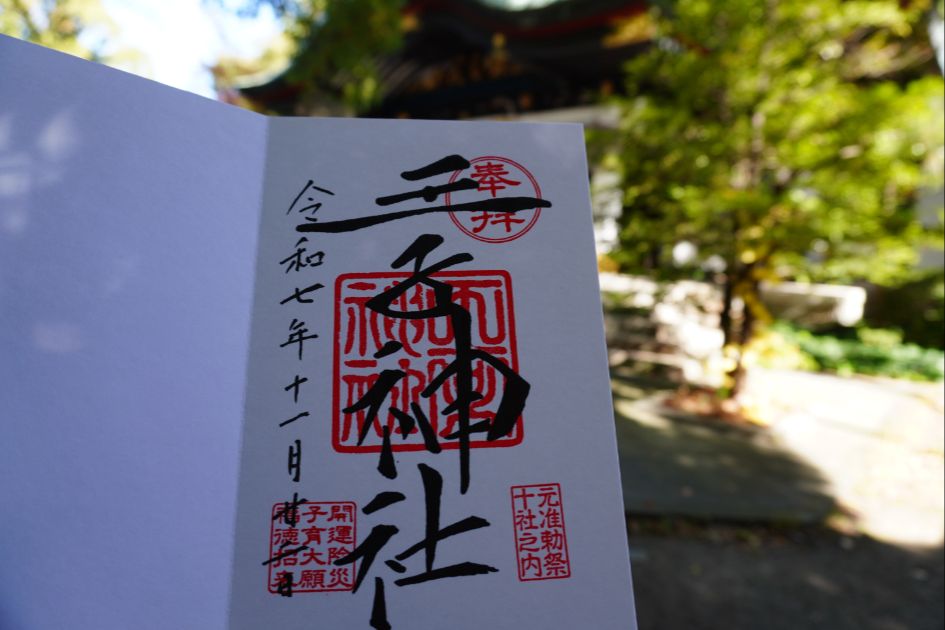 奉拝
王子神社
令和七年十一月廿
元准勅祭
十社之内
開運除災
子育大願
福徳招来